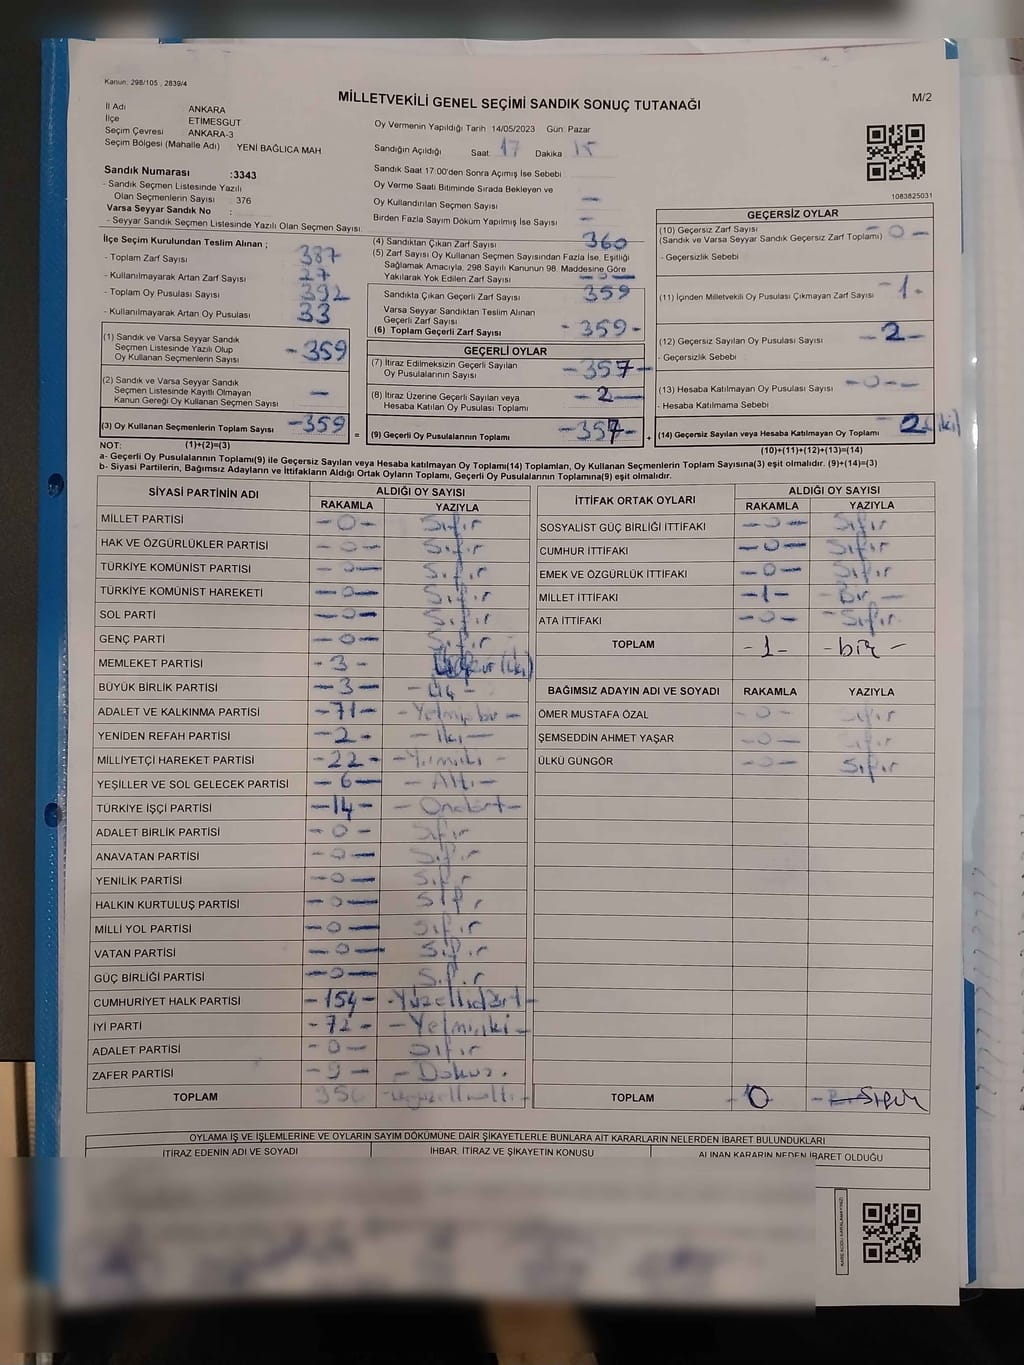 Kanun: 298/105 , 2839/4
MİLLETVEKİLİ GENEL SEÇİMİ SANDIK SONUÇ TUTANAĞI
M/2
İl Adı ANKARA
İlçe ETİMESGUT
Seçim Çevresi ANKARA-3
Seçim Bölgesi (Mahalle Adı) YENİ BAĞLICA MAH
Sandık Numarası :3343
- Sandık Seçmen Listesinde Yazılı
Olan Seçmenlerin Sayısı : 376
Varsa Seyyar Sandık No :
- Seyyar Sandık Seçmen Listesinde Yazılı Olan Seçmen Sayısı:
Oy Vermenin Yapıldığı Tarih 14/05/2023 Gün: Pazar
Sandığın Açıldığı Saat: 17 Dakika 15
Sandık Saat 17:00'den Sonra Açımış İse Sebebi
Oy Verme Saati Bitiminde Sırada Bekleyen ve
Oy Kullandırılan Seçmen Sayısı —
Birden Fazla Sayım Döküm Yapılmış İse Sayısı –
1083825031
İlçe Seçim Kurulundan Teslim Alınan ;
- Toplam Zarf Sayısı 387
- Kullanılmayarak Artan Zarf Sayısı 27
- Toplam Oy Pusulası Sayısı 392
- Kullanılmayarak Artan Oy Pusulası 33
(1) Sandık ve Varsa Seyyar Sandık
Seçmen Listesinde Yazılı Olup
Oy Kullanan Seçmenlerin Sayısı -359
(2) Sandık ve Varsa Seyyar Sandık
Seçmen Listesinde Kayıtlı Olmayan
Kanun Gereği Oy Kullanan Seçmen Sayısı —
(3) Oy Kullanan Seçmenlerin Toplam Sayısı -359
(4) Sandıktan Çıkan Zarf Sayısı 360
(5) Zarf Sayısı Oy Kullanan Seçmen Sayısından Fazla İse, Eşitliği
Sağlamak Amacıyla, 298 Sayılı Kanunun 98. Maddesine Göre
Yakılarak Yok Edilen Zarf Sayısı
Sandıkta Çıkan Geçerli Zarf Sayısı 359
Varsa Seyyar Sandıktan Teslim Alınan
Geçerli Zarf Sayısı
(6) Toplam Geçerli Zarf Sayısı -359-
GEÇERLİ OYLAR
(7) İtiraz Edilmeksizin Geçerli Sayılan
Oy Pusulalarının Sayısı -357-
(8) İtiraz Üzerine Geçerli Sayılan veya
Hesaba Katılan Oy Pusulası Toplamı -2—
= (9) Geçerli Oy Pusulalarının Toplamı -357- +
GEÇERSİZ OYLAR
(10) Geçersiz Zarf Sayısı
(Sandık ve Varsa Seyyar Sandık Geçersiz Zarf Toplamı) -0-
- Geçersizlik Sebebi
(11) İçinden Milletvekili Oy Pusulası Çıkmayan Zarf Sayısı -1-
(12) Geçersiz Sayılan Oy Pusulası Sayısı -2-
- Geçersizlik Sebebi
(13) Hesaba Katılmayan Oy Pusulası Sayısı -0-
- Hesaba Katılmama Sebebi
(14) Geçersiz Sayılan veya Hesaba Katılmayan Oy Toplamı 2 (iki)
(10)+(11)+(12)+(13)=(14)
NOT: (1)+(2)=(3)
a- Geçerli Oy Pusulalarının Toplamı(9) ile Geçersiz Sayılan veya Hesaba katılmayan Oy Toplamı(14) Toplamları, Oy Kullanan Seçmenlerin Toplam Sayısına(3) eşit olmalıdır. (9)+(14)=(3)
b- Siyasi Partilerin, Bağımsız Adayların ve İttifakların Aldığı Ortak Oyların Toplamı, Geçerli Oy Pusulalarının Toplamına(9) eşit olmalıdır.
SİYASİ PARTİNİN ADI ALDIĞI OY SAYISI
RAKAMLA YAZIYLA
MİLLET PARTİSİ -0- Sıfır
HAK VE ÖZGÜRLÜKLER PARTİSİ -0- Sıfır
TÜRKİYE KOMÜNİST PARTİSİ -0- Sıfır
TÜRKİYE KOMÜNİST HAREKETİ -0- Sıfır
SOL PARTİ -0- Sıfır
GENÇ PARTİ -0- Sıfır
MEMLEKET PARTİSİ -3-
BÜYÜK BİRLİK PARTİSİ -3- -Üç-
ADALET VE KALKINMA PARTİSİ -71- -Yetmişbir-
YENİDEN REFAH PARTİSİ -2- -İki-
MİLLİYETÇİ HAREKET PARTİSİ -22- -Yirmiiki-
YEŞİLLER VE SOL GELECEK PARTİSİ -6- -Altı-
TÜRKİYE İŞÇİ PARTİSİ -14- -Ondört-
ADALET BİRLİK PARTİSİ -0- Sıfır
ANAVATAN PARTİSİ -0- Sıfır
YENİLİK PARTİSİ -0- Sıfır
HALKIN KURTULUŞ PARTİSİ -0- Sıfır
MİLLİ YOL PARTİSİ -0- Sıfır
VATAN PARTİSİ -0- Sıfır
GÜÇ BİRLİĞİ PARTİSİ -0- Sıfır
CUMHURİYET HALK PARTİSİ -154- -Yüzellidört-
İYİ PARTİ -72- -Yetmişiki-
ADALET PARTİSİ -0- Sıfır
ZAFER PARTİSİ -9- -Dokuz-
TOPLAM 356 -Üçyüzellialtı-
İTTİFAK ORTAK OYLARI ALDIĞI OY SAYISI
RAKAMLA YAZIYLA
SOSYALİST GÜÇ BİRLİĞİ İTTİFAKI -0- Sıfır
CUMHUR İTTİFAKI -0- Sıfır
EMEK VE ÖZGÜRLÜK İTTİFAKI -0- Sıfır
MİLLET İTTİFAKI -1- -Bir-
ATA İTTİFAKI -0- -Sıfır
TOPLAM -1- -bir-
BAĞIMSIZ ADAYIN ADI VE SOYADI RAKAMLA YAZIYLA
ÖMER MUSTAFA ÖZAL -0- Sıfır
ŞEMSEDDİN AHMET YAŞAR -0- Sıfır
ÜLKÜ GÜNGÖR -0- Sıfır
TOPLAM 0 Sıfır
OYLAMA İŞ VE İŞLEMLERİNE VE OYLARIN SAYIM DÖKÜMÜNE DAİR ŞİKAYETLERLE BUNLARA AİT KARARLARIN NELERDEN İBARET BULUNDUKLARI
İTİRAZ EDENİN ADI VE SOYADI İHBAR, İTİRAZ VE ŞİKAYETİN KONUSU ALINAN KARARIN NEDEN İBARET OLDUĞU